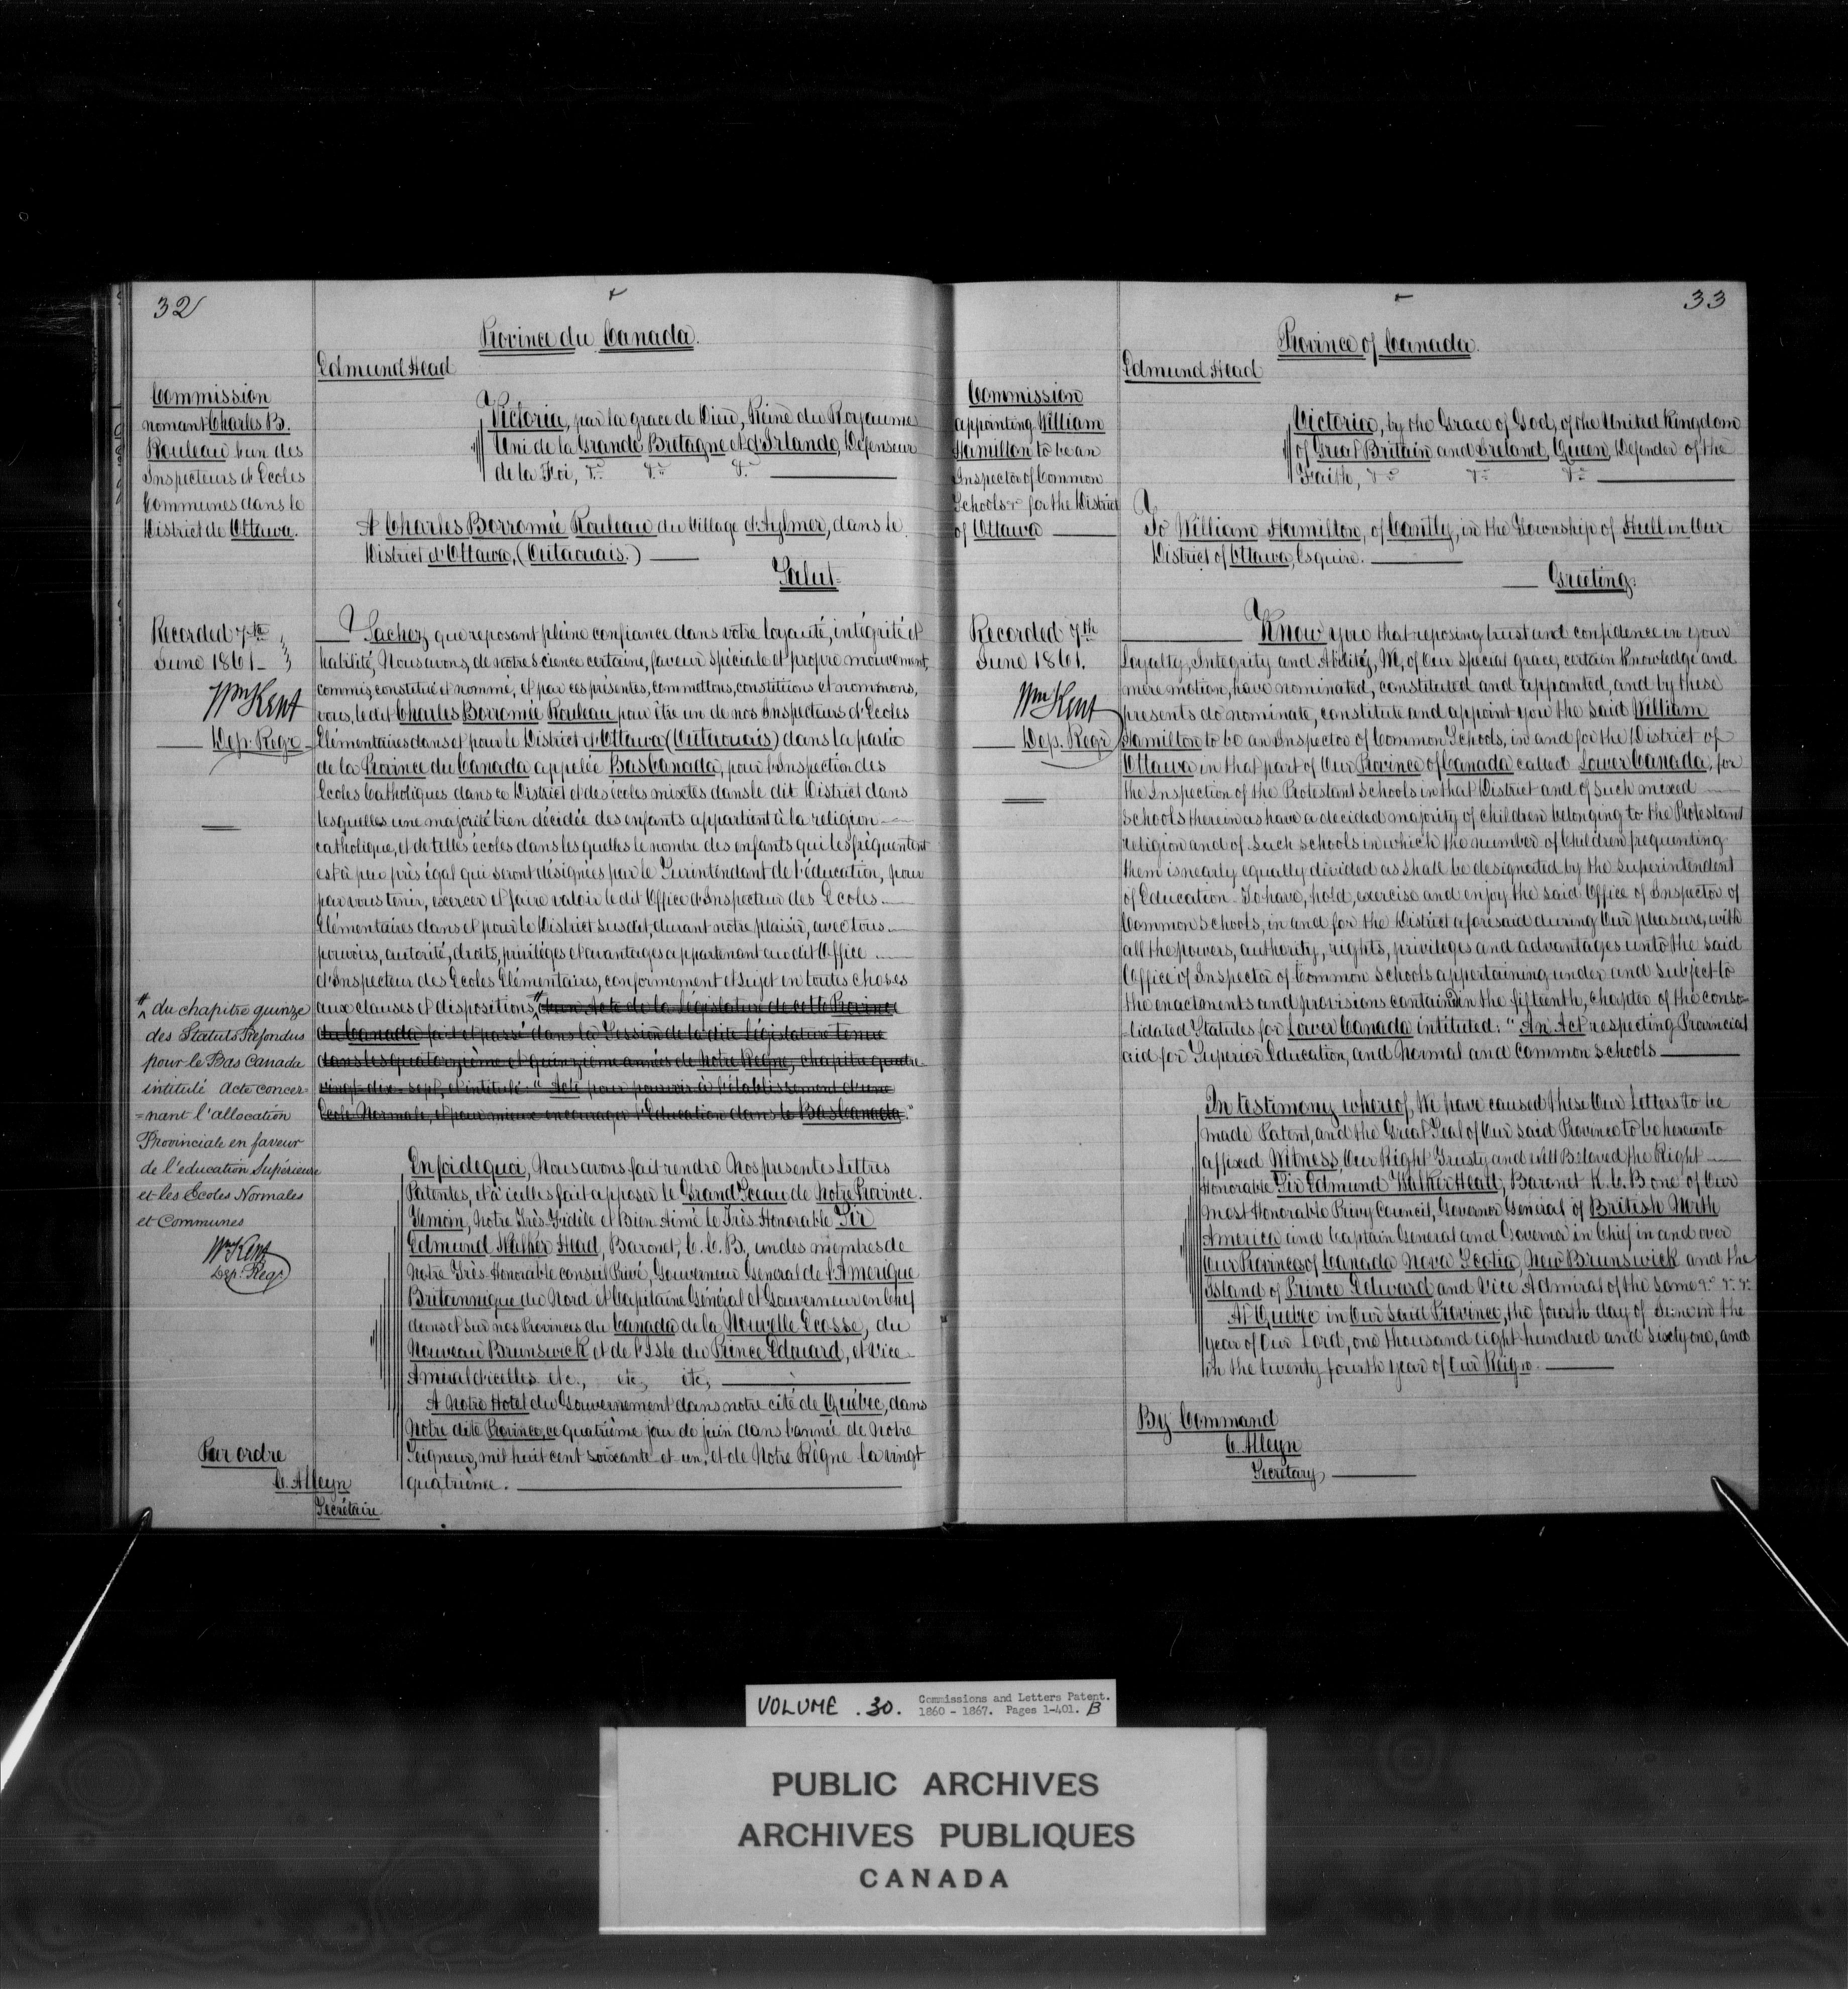 32
Province du Canada.
Edmund Head
Commission
nomant Charles B.
Rouleau l'un des
Inspecteurs d'Ecoles
Communes dans le
District de Ottawa.
Victoria, par la grace de Dieu, Reine du Royaume
Uni de la Grande Bretagne et d'Irlande, Défenseur
de la Foi, &c &c &c
A Charles Borromée Rouleau du Village d'Aylmer, dans le
District d'Ottawa, (Outaouais.)
Salut=
Recorded 7th
June 1861
Wm Kent
Dep. Regr
Sachez que reposant pleine confiance dans votre loyauté, intégrité et
habilité, Nous avons, de notre science certaine, faveur spéciale et propre mouvement,
commis, constitué et nommé, et par ces présentes, commettons, constitüons et nommons,
vous, le dit Charles Borromée Rouleau pour être un de nos Inspecteurs d'Ecoles
Elémentaires dans et pour le District d'Ottawa (Outaouais) dans la partie
de la Province du Canada appelée Bas Canada, pour l'Inspection des
Ecoles Catholiques dans ce District et des écoles mixtes dans le dit District dans
lesquelles une majorité bien décidée des enfants appartient à la religion
catholique, et de telles écoles dans les quelles le nombre des enfants qui les fréquentent
est à peu près égal qui seront désignées par le Surintendant de l'éducation, pour
par vous tenir, exercer et faire valoir le dit Office d'Inspecteur des Ecoles
Elémentaires dans et pour le District susdit, durant notre plaisir, avec tous
pouvoirs, autorité, droits, priviléges et avantages appartenant au dit Office
d'Inspecteur des Ecoles Elémentaires, conformement et sujet en toutes choses
aux clauses et dispositions d'un Acte de la Législature de cette Province
du Canada fait et passé dans la Session de la dite Législature tenue
dans les quatorzième et quinzième années de Notre Règne, chapitre quatre-
vingt-dix-sept, et intitulé "Acte pour pourvoir à l'établissement d'une
Ecole Normale, et pour mieux encourager l'Education dans le Bas Canada."
du chapitre quinze
des Statuts Refondus
pour le Bas Canada
intitulé Acte concer=
=nant l'allocation
Provinciale en faveur
de l'education Supérieure
et les Ecoles Normales
et Communes
Wm Kent
Dep. Regr
En foi de quoi, Nous avons fait rendre Nos presentes Lettres
Patentes, et à icelles fait apposer le Grand Sceau de Notre Province.
Temoin, Notre Très-Fidèle et Bien-Aimé le Très-Honorable Sir
Edmund Walker Head, Baronet, C. C. B., un des membres de
Notre Très-Honorable conseil Privé, Gouverneur Général de l'Amerique
Britannique du Nord et Capitaine Général et Gouverneur en Chef
dans et sur nos Provinces du Canada de la Nouvelle Ecosse, du
Nouveau Brunswick et de l'Isle du Prince Edouard, et Vice
Amiral d'icelles etc., etc, etc,
A Notre Hotel du Gouvernement dans notre cité de Québec, dans
Notre dite Province, ce quatrième jour de juin dans l'année de Notre
Seigneur, mil huit cent soixante et un, et de Notre Règne la vingt
quatrième.
Par ordre
C. Alleyn
Secrétaire
33
Province of Canada.
Edmund Head
Commission
appointing William
Hamilton to be an
Inspector of Common
Schools for the District
of Ottawa
Victoria, by the Grace of God, of the United Kingdom
of Great Britain and Ireland, Queen, Defender of the
Faith, &c &c &c
To William Hamilton, of Cantly, in the Township of Hull in Our
District of Ottawa, Esquire.
Greeting.
Recorded 7th
June 1861.
Wm Kent
Dep. Regr
Know you that reposing trust and confidence in your
Loyalty, Integrity and Ability, We, of Our special grace, certain knowledge and
mere motion, have nominated, constituted and appointed, and by these
presents do nominate, constitute and appoint you the said William
Hamilton to be an Inspector of Common Schools, in and for the District of
Ottawa in that part of Our Province of Canada called Lower Canada, for
the Inspection of the Protestant Schools in that District and of such mixed
Schools therein as have a decided majority of children belonging to the Protestant
religion and of such schools in which the number of Children frequenting
them is nearly equally divided as shall be designated by the Superintendent
of Education. To have, hold, exercise and enjoy the said Office of Inspector of
Common Schools, in and for the District aforesaid during Our pleasure, with
all the powers, authority, rights, privileges and advantages unto the said
Office of Inspector of Common Schools appertaining under and subject to
the enactments and provisions contained in the fifteenth, chapter of the conso-
-lidated Statutes for Lower Canada intituled: "An Act respecting Provincial
aid for Superior Education, and Normal and Common Schools
In testimony whereof, We have caused these Our Letters to be
made Patent, and the Great Seal of Our said Province to be hereunto
affixed Witness, Our Right Trusty and Well Beloved the Right
Honorable Sir Edmund Walker Head, Baronet K. C. B one of Our
Most Honorable Privy Council, Governor General of British North
America and Captain General and Governor in Chief in and over
Our Provinces of Canada Nova Scotia, New Brunswick and the
Island of Prince Edward and Vice Admiral of the same &c &c &c
At Quebec in Our said Province, the fourth day of June in the
year of Our Lord, one thousand eight hundred and sixty one, and
in the twenty fourth year of Our Reign.
By Command
C. Alleyn
Secretary
VOLUME . 30. Commissions and Letters Patent.
1860 - 1867. Pages 1-401. B
PUBLIC ARCHIVES
ARCHIVES PUBLIQUES
CANADA